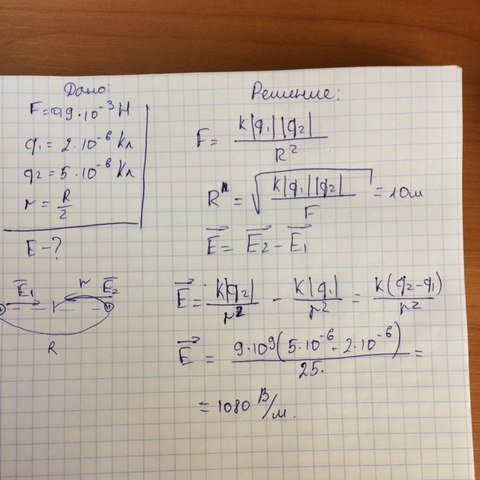 Дано:
F = 0,9·10⁻³ Н
q₁ = 2·10⁻⁶ Кл
q₂ = 5·10⁻⁶ Кл
r = R/2
E - ?
E₁ r E₂
R
Решение:
F = K|q₁||q₂| / R²
R = √(K|q₁||q₂| / F) = 10м
E = E₂ - E₁
E = K|q₂| / r² - K|q₁| / r² = K(q₂-q₁) / r²
E = 9·10⁹(5·10⁻⁶ - 2·10⁻⁶) / 25 =
= 1080 В/м.